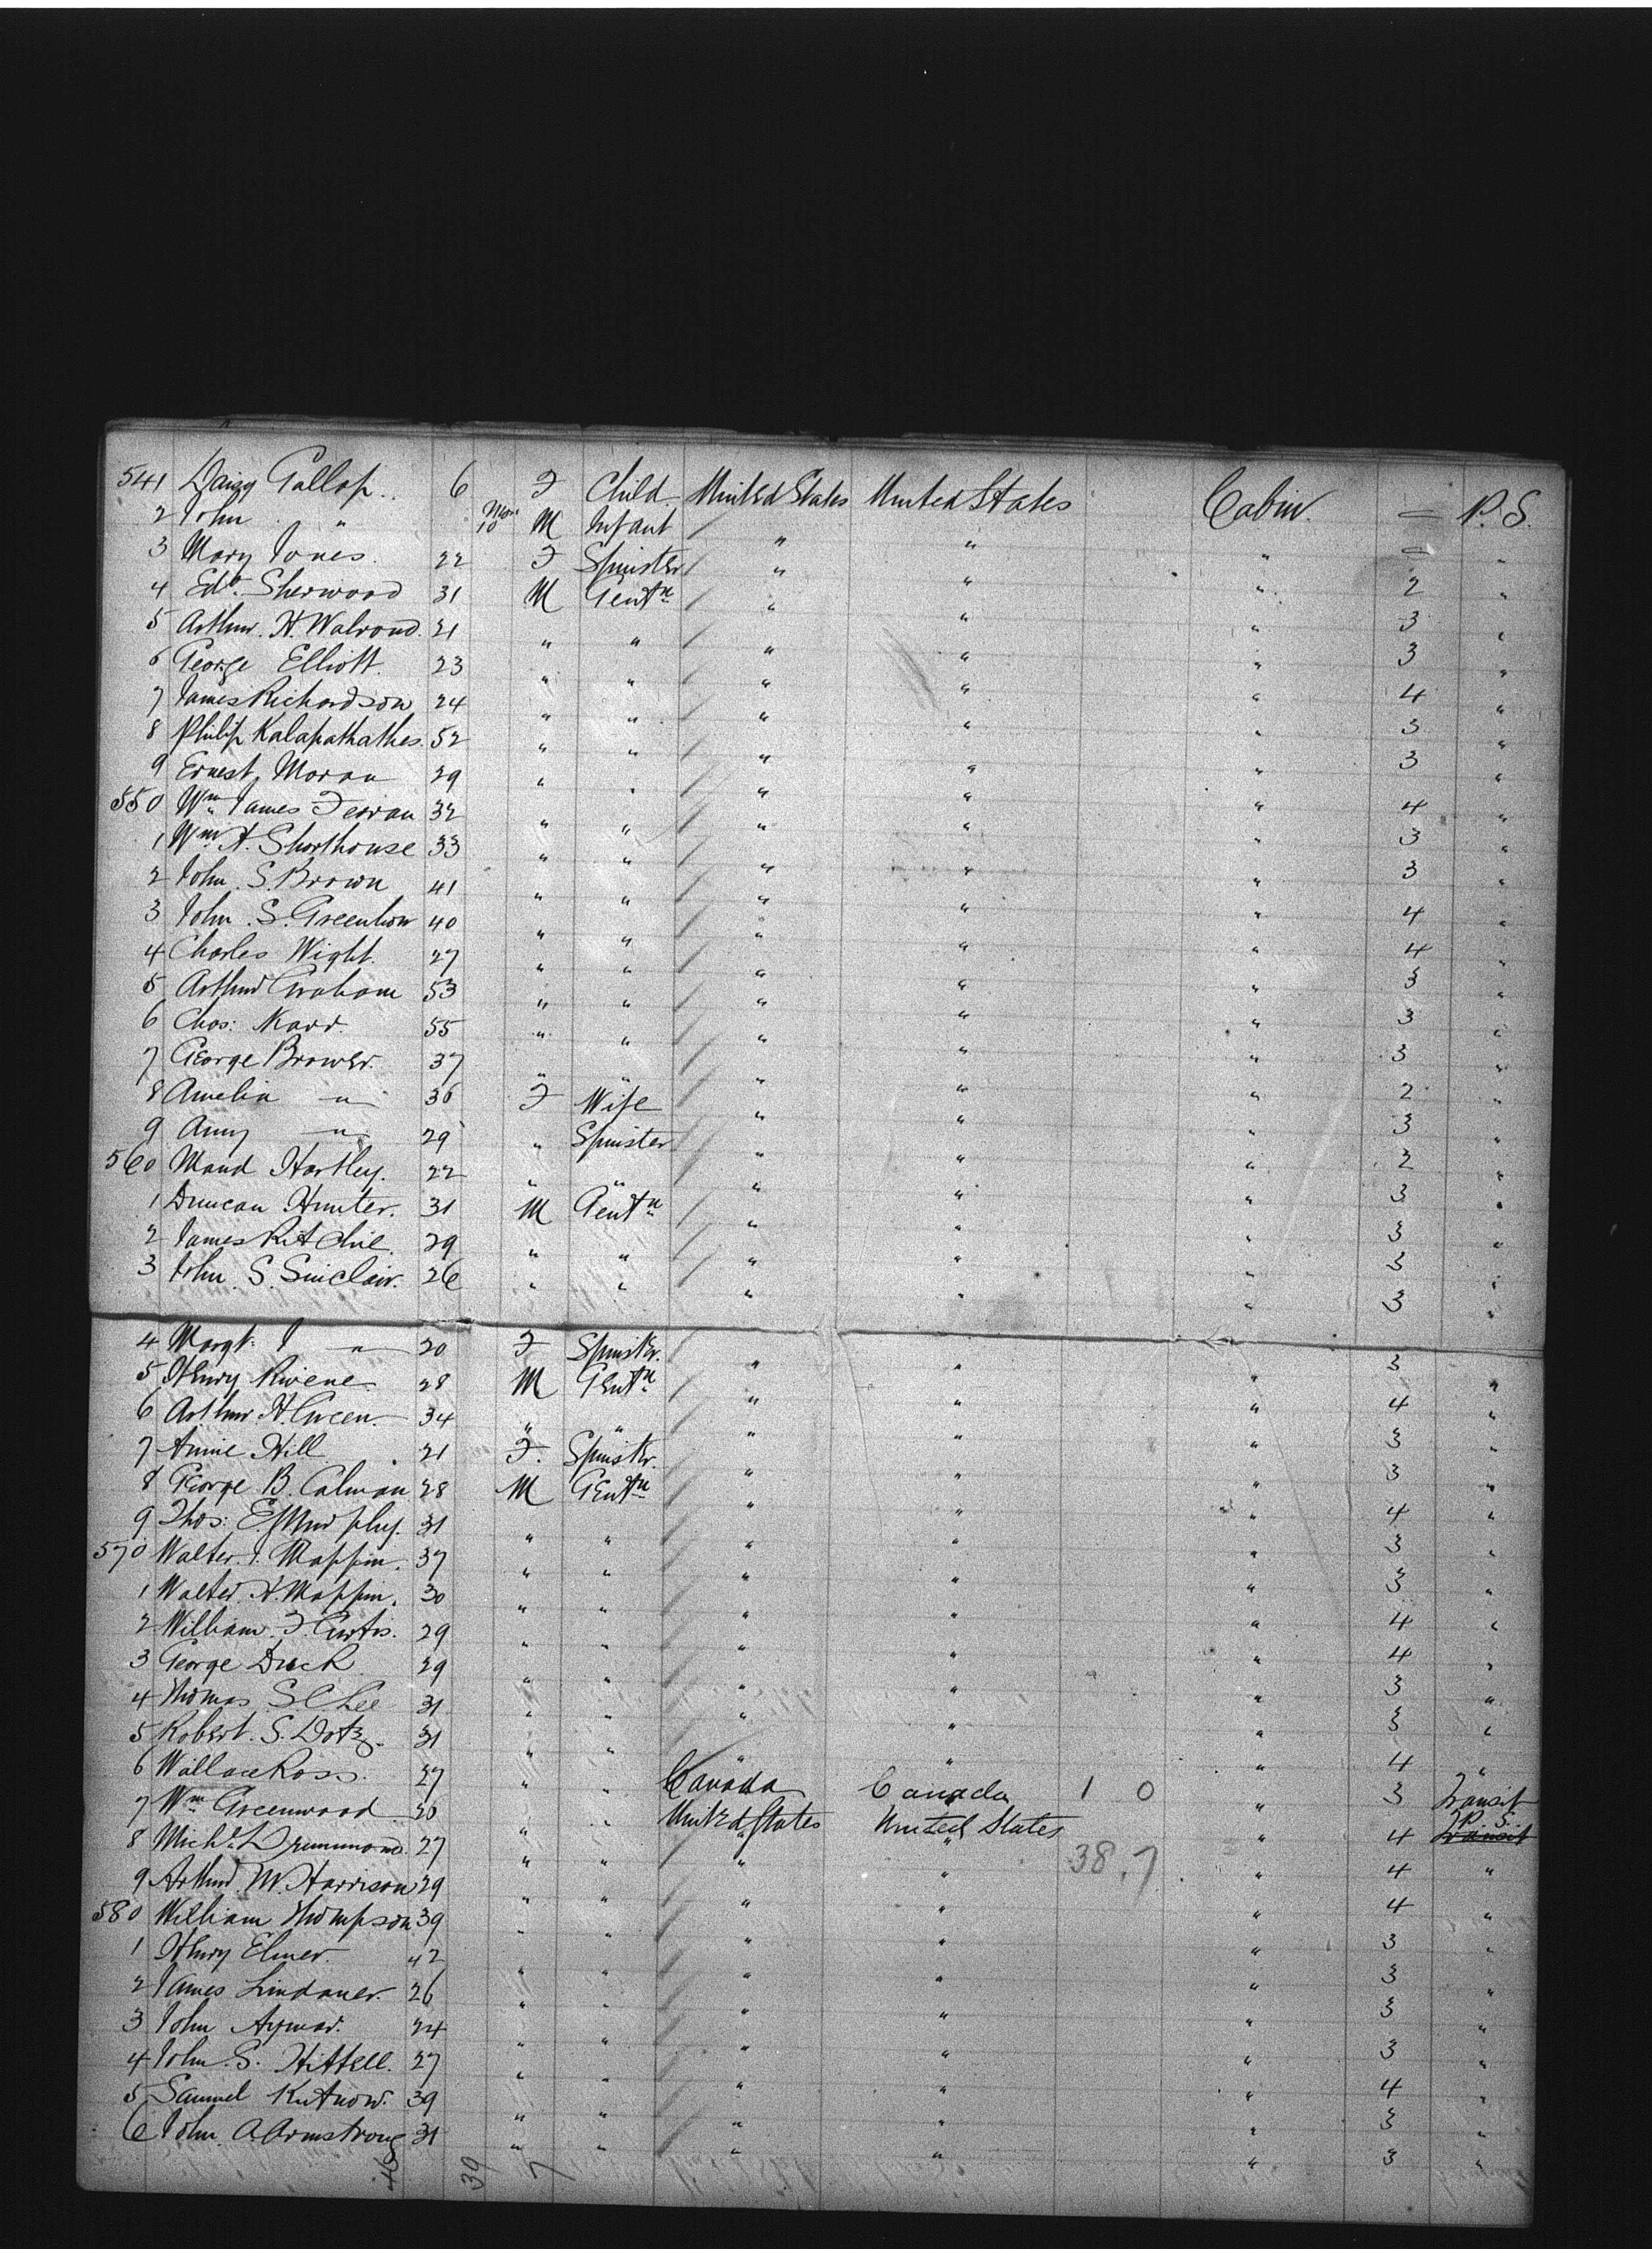 541 Daisy Gallop.. 6 F Child United States United States Cabin. — P.S.
2 John " Mos 10 M Infant " " " — "
3 Mary Jones. 22 F Spinster " " " 2 "
4 Edw. Sherwood 31 M Gentn " " " 3 "
5 Arthur. H. Walrond. 21 " " " " " 3 "
6 George Elliott. 23 " " " " " 4 "
7 James Richardson 24 " " " " " 3 "
8 Philip Kalapathathes. 52 " " " " " 3 "
9 Ernest Moran 29 " " " " " 4 "
550 Wm James Ferran 32 " " " " " 3 "
1 Wm A. Shorthouse 33 " " " " " 3 "
2 John. S. Brown 41 " " " " " 4 "
3 John. S. Greenhow 40 " " " " " 4 "
4 Charles Wight. 27 " " " " " 3 "
5 Arthur Graham 53 " " " " " 3 "
6 Chas: Karr. 55 " " " " " 3 "
7 George Brower. 37 " " " " " 2 "
8 Amelia " 36 F Wife " " " 3 "
9 Amy " 29 " Spinster " " " 2 "
560 Maud Hartley. 22 " " " " " 3 "
1 Duncan Hunter. 31 M Gentn " " " 3 "
2 James Ritchie. 29 " " " " " 3 "
3 John. S. Sinclair. 26 " " " " " 3 "
4 Margt. J " 20 F Spinster. " " " 3 "
5 Henry Riviene. 28 M Gentn " " " 4 "
6 Arthur. H. Green. 34 " " " " " 3 "
7 Annie Hill 21 F. Spinster. " " " 3 "
8 George B. Calman 28 M Gentn " " " 4 "
9 Thos: E. Murphy. 31 " " " " " 3 "
570 Walter. J. Mappin. 37 " " " " " 3 "
1 Walter. H. Mappin. 30 " " " " " 4 "
2 William. F. Curtis. 29 " " " " " 4 "
3 George Duck 29 " " " " " 3 "
4 Thomas S. C. Lee 31 " " " " " 3 "
5 Robert. S. Dotz. 31 " " " " " 4 "
6 Wallace Ross. 27 " " Canada Canada 1 0 " 3 Transit
7 Wm Greenwood 20 " " United States United States " 4 P.S. Transit
8 Michl. Drummond. 27 " " " " 38.7 " 4 "
9 Arthur. W. Harrison 29 " " " " " 4 "
580 William Thompson 39 " " " " " 3 "
1 Henry Elmer. 42 " " " " " 3 "
2 James Lindauer. 26 " " " " " 3 "
3 John Aymar. 24 " " " " " 3 "
4 John. S. Hittell. 27 " " " " " 4 "
5 Samuel Kutnow. 39 " " " " " 3 "
6 John A Armstrong 31 " " " " " 3 "
46 39 7